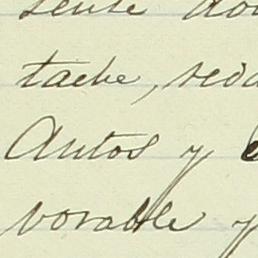 sente do
tache, seda
Autos y
vorable y